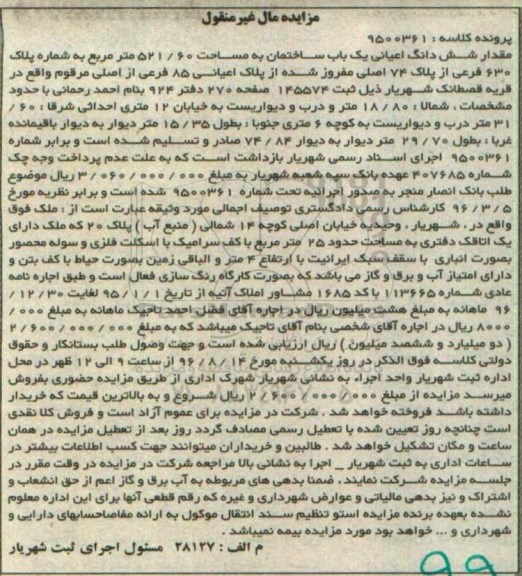 مزایده مال غیرمنقول
پرونده کلاسه : ۹۵۰۰۳۶۱
مقدار شـش دانگ اعیانی یک باب ساختمان به مساحت ۵۲۱/۶۰ متر مربع به شماره پلاک
۶۳۰ فرعی از پلاک ۷۴ اصلی مفروز شده از پلاک اعیانی ۸۵ فرعی از اصلی مرقوم واقع در
قریه قصطانک شهریار ذیل ثبت ۱۴۵۵۷۴ صفحه ۲۷۰ دفتر ۹۲۴ بنام احمد رحمانی با حدود
مشخصات ، شمالا : ۱۸/۸۰ متر و درب و دیواریست به خیابان ۱۲ متری احداثی شرقا : ۶۰/
۳۱ متر درب و دیواریست به کوچه ۶ متری جنوبا : بطول ۱۵/۳۵ متر دیوار به دیوار باقیمانده
غربا : بطول ۲۹/۷۰ متر دیوار به دیوار ۷۴/۸۴ صادر و تسلیم شده است و برابر شماره
۹۵۰۰۳۶۱ اجرای اسناد رسمی شهریار بازداشت است که به علت عدم پرداخت وجه چک
شماره ۴۰۷۶۸۵ عهده بانک سپه شعبه شهریار به مبلغ ۳/۰۶۰/۰۰۰/۰۰۰ ریال موضوع
طلب بانک انصار منجر به صدور اجرائیه تحت شماره ۹۵۰۰۳۶۱ شده است و برابر نظریه مورخ
۹۶/۳/۵ کارشناس رسمی دادگستری توصیف اجمالی مورد وثیقه عبارت است از : ملک فوق
واقع در ، شهریار ، وحیدیه خیابان اصلی کوچه ۱۴ شمالی ( منبع آب ) پلاک ۲۰ که ملک دارای
یک اتاقک دفتری به مساحت حدود ۲۵ متر مربع با کف سرامیک با اسکلت فلزی و سوله محصور
بصورت انباری با سقف سبک ایرانیت با ارتفاع ۴ متر و الباقی زمین بصورت حیاط با کف بتن و
دارای امتیاز آب و برق و گاز می باشد که بصورت کارگاه رنگ سازی فعال است و طبق اجاره نامه
عادی شماره ۱۱۳۶۶۵ با کد ۱۶۸۵ مشاور املاک آتیه از تاریخ ۹۵/۱/۱ لغایت ۱۲/۳۰/
۹۶ ماهانه به مبلغ هشت میلیون ریال در اجاره آقای فضل احمد تاجیک ماهانه به مبلغ ۰۰۰/
۸۰۰۰ ریال در اجاره آقای شخصی بنام آقای تاجیک میباشد که به مبلغ ۲/۶۰۰/۰۰۰/۰۰۰
( دو میلیارد و ششصد میلیون ) ریال ارزیابی شده است و جهت وصول طلب بستانکار و حقوق
دولتی کلاسه فوق الذکر در روز یکشنبه مورخ ۹۶/۸/۱۴ از ساعت ۹ الی ۱۲ ظهر در محل
اداره ثبت شهریار واحد اجراء به نشانی شهریار شهرک اداری از طریق مزایده حضوری بفروش
میرسد مزایده از مبلغ ۲/۶۰۰/۰۰۰/۰۰۰ ریال شروع و به بالاترین قیمت که خریدار
داشته باشد فروخته خواهد شد . شرکت در مزایده برای عموم آزاد است و فروش کلا نقدی
است چنانچه روز تعیین شده با تعطیل رسمی مصادف گردد روز بعد از تعطیل مزایده در همان
ساعت و مکان تشکیل خواهد شد . طالبین و خریداران میتوانند جهت کسب اطلاعات بیشتر در
ساعات اداری به ثبت شهریار _ اجرا به نشانی بالا مراجعه شرکت در مزایده در وقت مقرر در
جلسه مزایده شرکت نمایند ، ضمنا بدهی های مربوطه به آب برق و گاز اعم از حق انشعاب و
اشتراک و نیز بدهی مالیاتی و عوارض شهرداری و غیره که رقم قطعی آنها برای این اداره معلوم
نشده بعهده برنده مزایده استو تنظیم سند انتقال موکول به ارائه مفاصاحسابهای دارایی و
شهرداری و ... خواهد بود مورد مزایده بیمه نمیباشد .
م الف : ۲۸۱۲۷ مسئول اجرای ثبت شهریار
۹۹